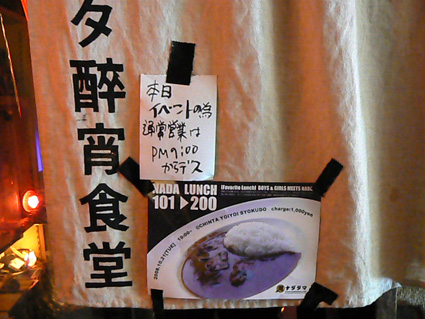 タ酔宵食堂
本日
イベントの為
通常営業は
PM9:00
からデス
NADA LUNCH
101 > 200
favorite lunch! BOYS & GIRLS MEETS NADA
2008.10.21[TUE] 19:00~ @CHINTA YOIYOI SYOKUDO charge:1,000yen
ナダタマ